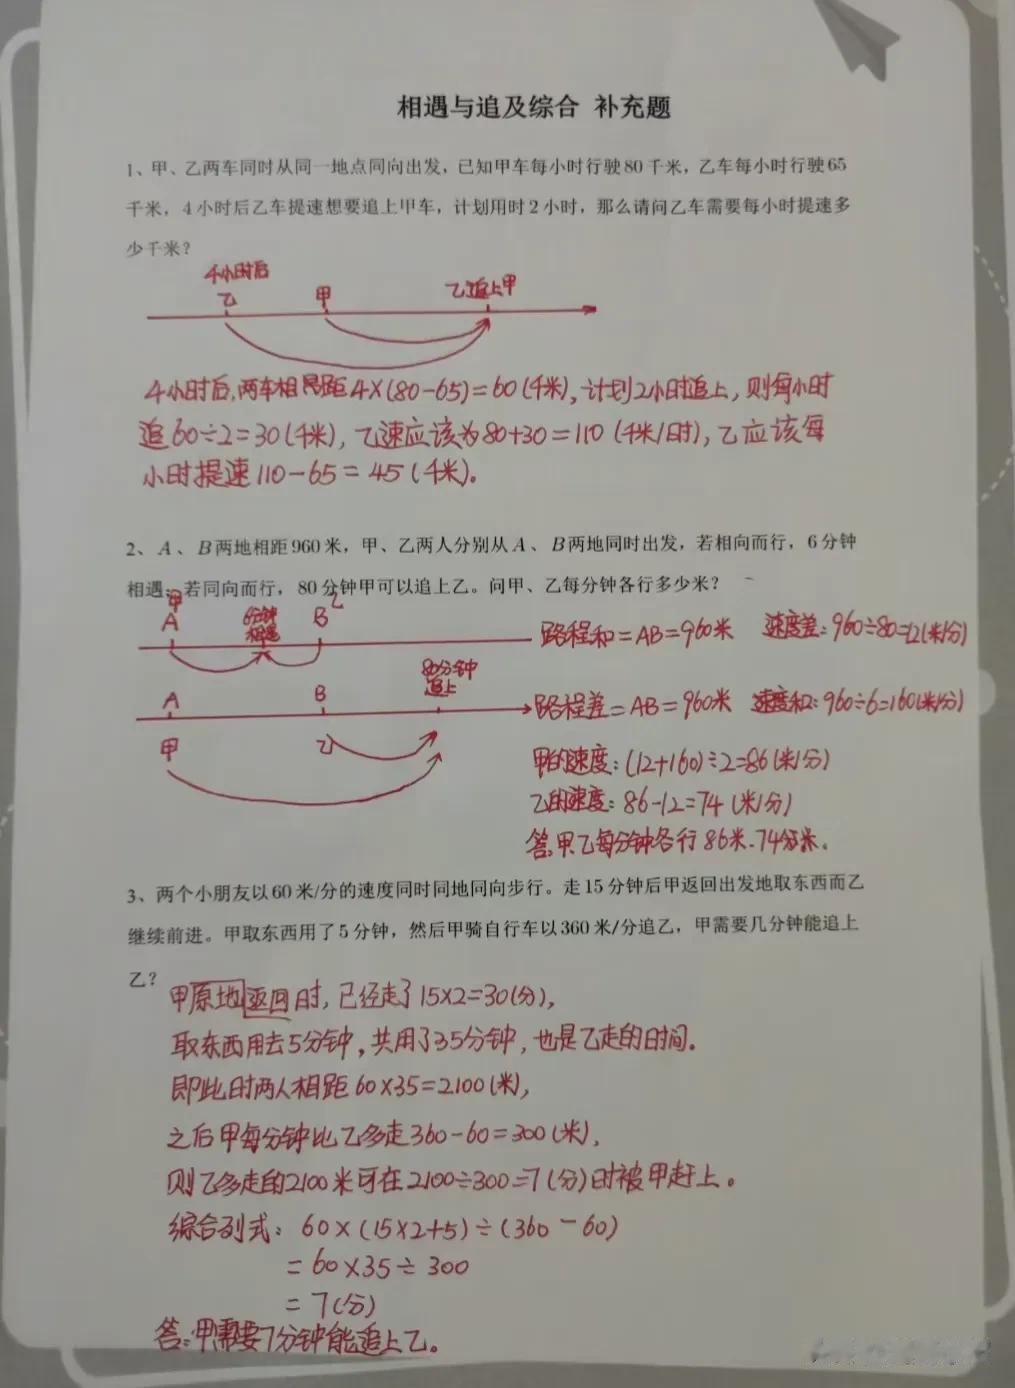 相遇与追及综合 补充题
1、甲、乙两车同时从同一地点同向出发，已知甲车每小时行驶80千米，乙车每小时行驶65
千米，4小时后乙车提速想要追上甲车，计划用时2小时，那么请问乙车需要每小时提速多
少千米？
4小时后
乙 甲 乙追上甲
4小时后,两车相距4×(80-65)=60(千米),计划2小时追上,则每小时
追60÷2=30(千米),乙速应该为80+30=110(千米/时),乙应该每
小时提速110-65=45(千米)。
2、A、B两地相距960米，甲、乙两人分别从A、B两地同时出发，若相向而行，6分钟
相遇；若同向而行，80分钟甲可以追上乙。问甲、乙每分钟各行多少米？
甲 乙
A 6分钟 B
相遇
路程和=AB=960米 速度差:960÷80=12(米/分)
80分钟
追上
A B
路程差=AB=960米 速度和:960÷6=160(米/分)
甲 乙
甲的速度:(12+160)÷2=86(米/分)
乙的速度:86-12=74(米/分)
答:甲乙每分钟各行86米、74米。
3、两个小朋友以60米/分的速度同时同地同向步行。走15分钟后甲返回出发地取东西而乙
继续前进。甲取东西用了5分钟，然后甲骑自行车以360米/分追乙，甲需要几分钟能追上
乙？
甲原地返回时,已经走了15×2=30(分),
取东西用去5分钟,共用了35分钟,也是乙走的时间.
即此时两人相距60×35=2100(米),
之后甲每分钟比乙多走360-60=300(米),
则乙多走的2100米可在2100÷300=7(分)时被甲赶上。
综合列式: 60×(15×2+5)÷(360-60)
=60×35÷300
=7(分)
答:甲需要7分钟能追上乙。